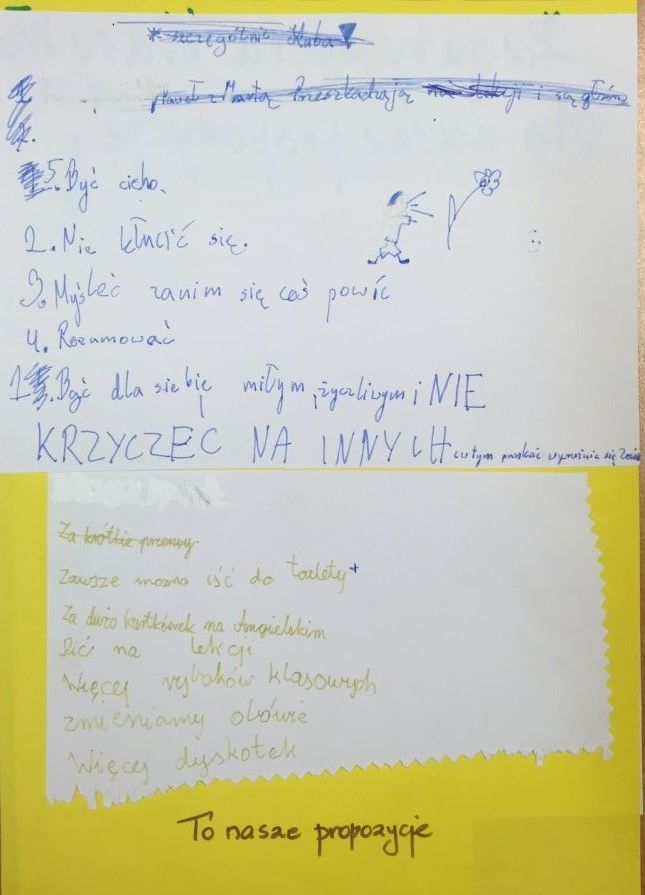 * szczególnie Kuba
Paweł z Martą Przeszkadzają na lekcji i są głośno
5. Być cicho.
2. Nie kłucić się.
3. Myśleć zanim się coś powić
4. Rozumować
1. Być dla siebie miłym, życzliwym i NIE
KRZYCZEĆ NA INNYCH w tym punkcie wyróżnia się
Za krótkie przerwy
Zawsze można iść do toalety +
Za dużo kartkówek na Angielskim
Pić na lekcji
Więcej klasowych
zmieniamy obówie
Więcej dyskotek
To nasze propozycje